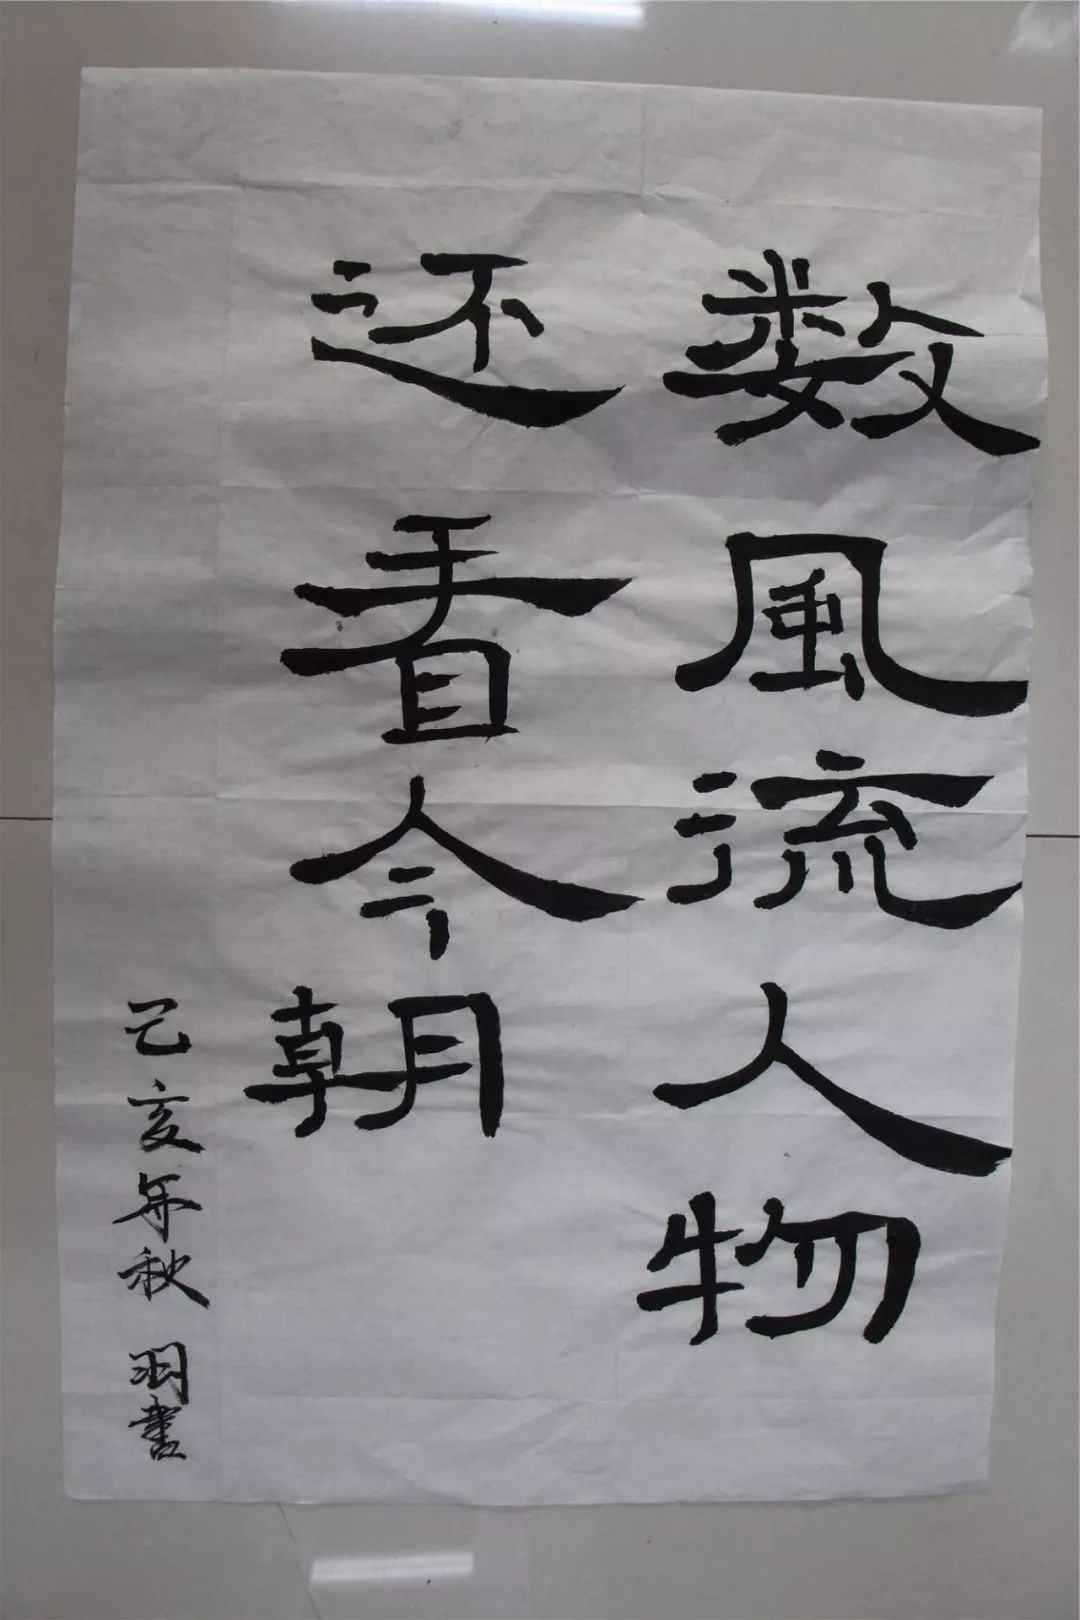 数風流人物
还看今朝
己亥年秋 羽書